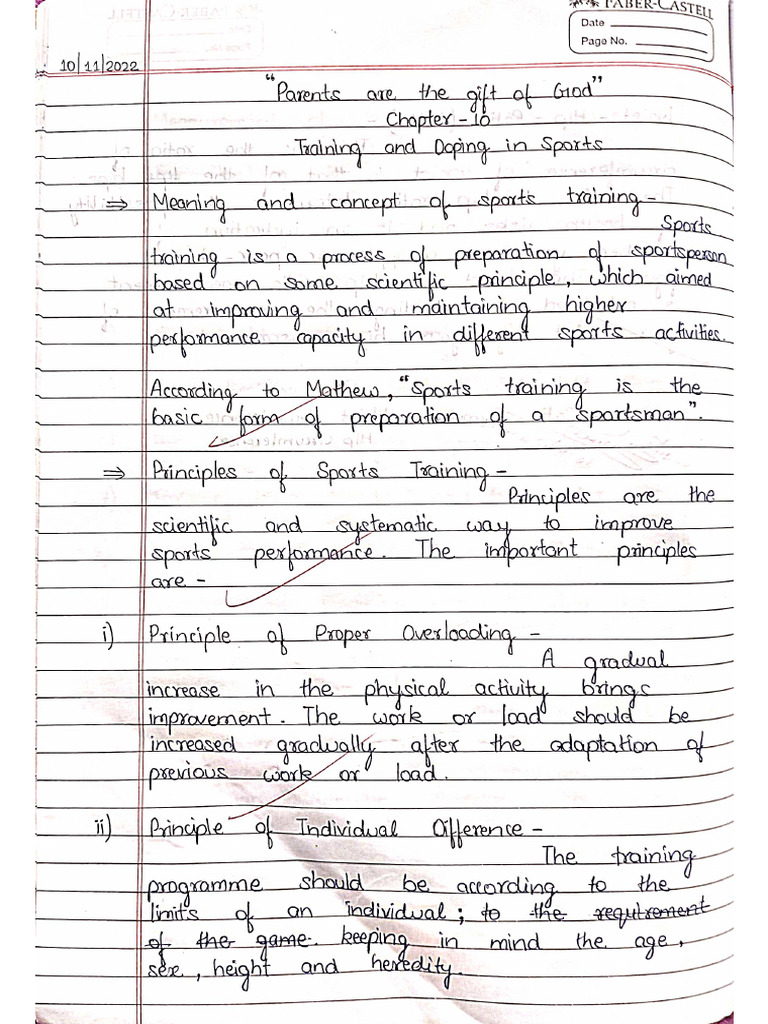 FABER-CASTELL
Date
Page No.
10/11/2022
"Parents are the gift of God"
Chapter - 10
Training and Doping in Sports
⇒ Meaning and concept of sports training -
Sports
training is a process of preparation of sportsperson
based on some scientific principle, which aimed
at improving and maintaining higher
performance capacity in different sports activities.
According to Mathew, "Sports training is the
basic form of preparation of a sportsman".
⇒ Principles of Sports Training -
Principles are the
scientific and systematic way to improve
sports performance. The important principles
are -
i) Principle of Proper Overloading -
A gradual
increase in the physical activity brings
improvement. The work or load should be
increased gradually after the adaptation of
previous work or load.
ii) Principle of Individual Difference -
The training
programme should be according to the
limits of an individual; to the requirement
of the game. keeping in mind the age,
sex, height and heredity.